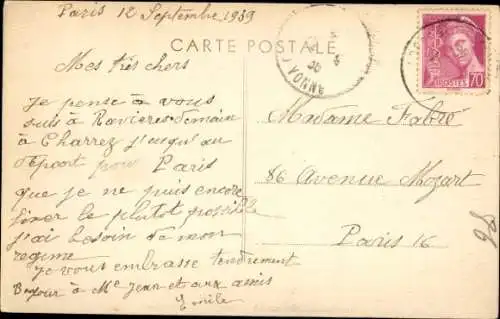 Paris 12 Septembre 1939
CARTE POSTALE
Mes très chers
Je pense à vous
suis à Ravieres demain
à Charrez j'usqu'au
départ pour Paris
que je ne puis encore
fixer le plutot possible
j'ai besoin de mon
regime
je vous embrasse tendrement
Bonjour à Me Jean et aux amis
Emile
POSTES 70
Madame Fabre
86 Avenue Mozart
Paris 16